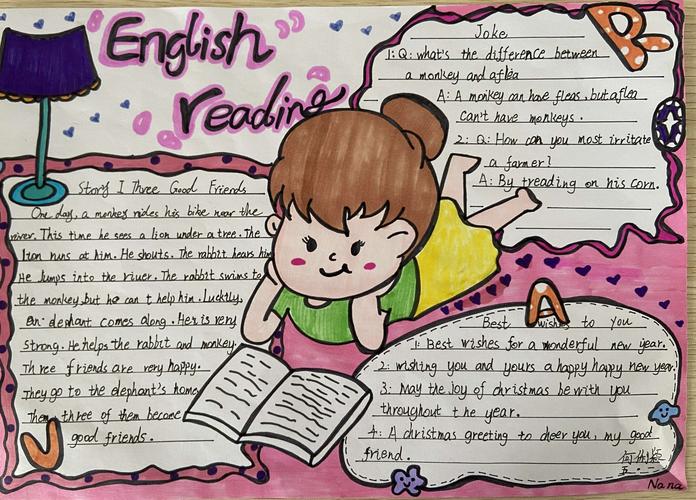 English
reading
Joke
1: Q: what's the difference between
a monkey and aflea
A: A monkey can have fleas, but aflea
can't have monkeys.
2: Q: How can you most irritate
a farmer?
A: By treading on his corn.
Story 1 Three Good Friends
One day, a monkey rides his bike near the
river. This time he sees a lion under a tree. The
lion runs at him. He shouts. The rabbit hears him
He Jumps into the river. The rabbit swims to
the monkey, but he can t help him. Luckily,
an elephant comes along. He is very
strong. He helps the rabbit and monkey.
Three friends are very happy.
They go to the elephant's home
Then three of them become
good friends.
Best wishes to you
1: Best wishes for a wonderful new year.
2: wishing you and yours a happy happy new year
3: May the Joy of christmas be with you
throughout the year.
4: A christmas greeting to cheer you, my good
friend.
Nana